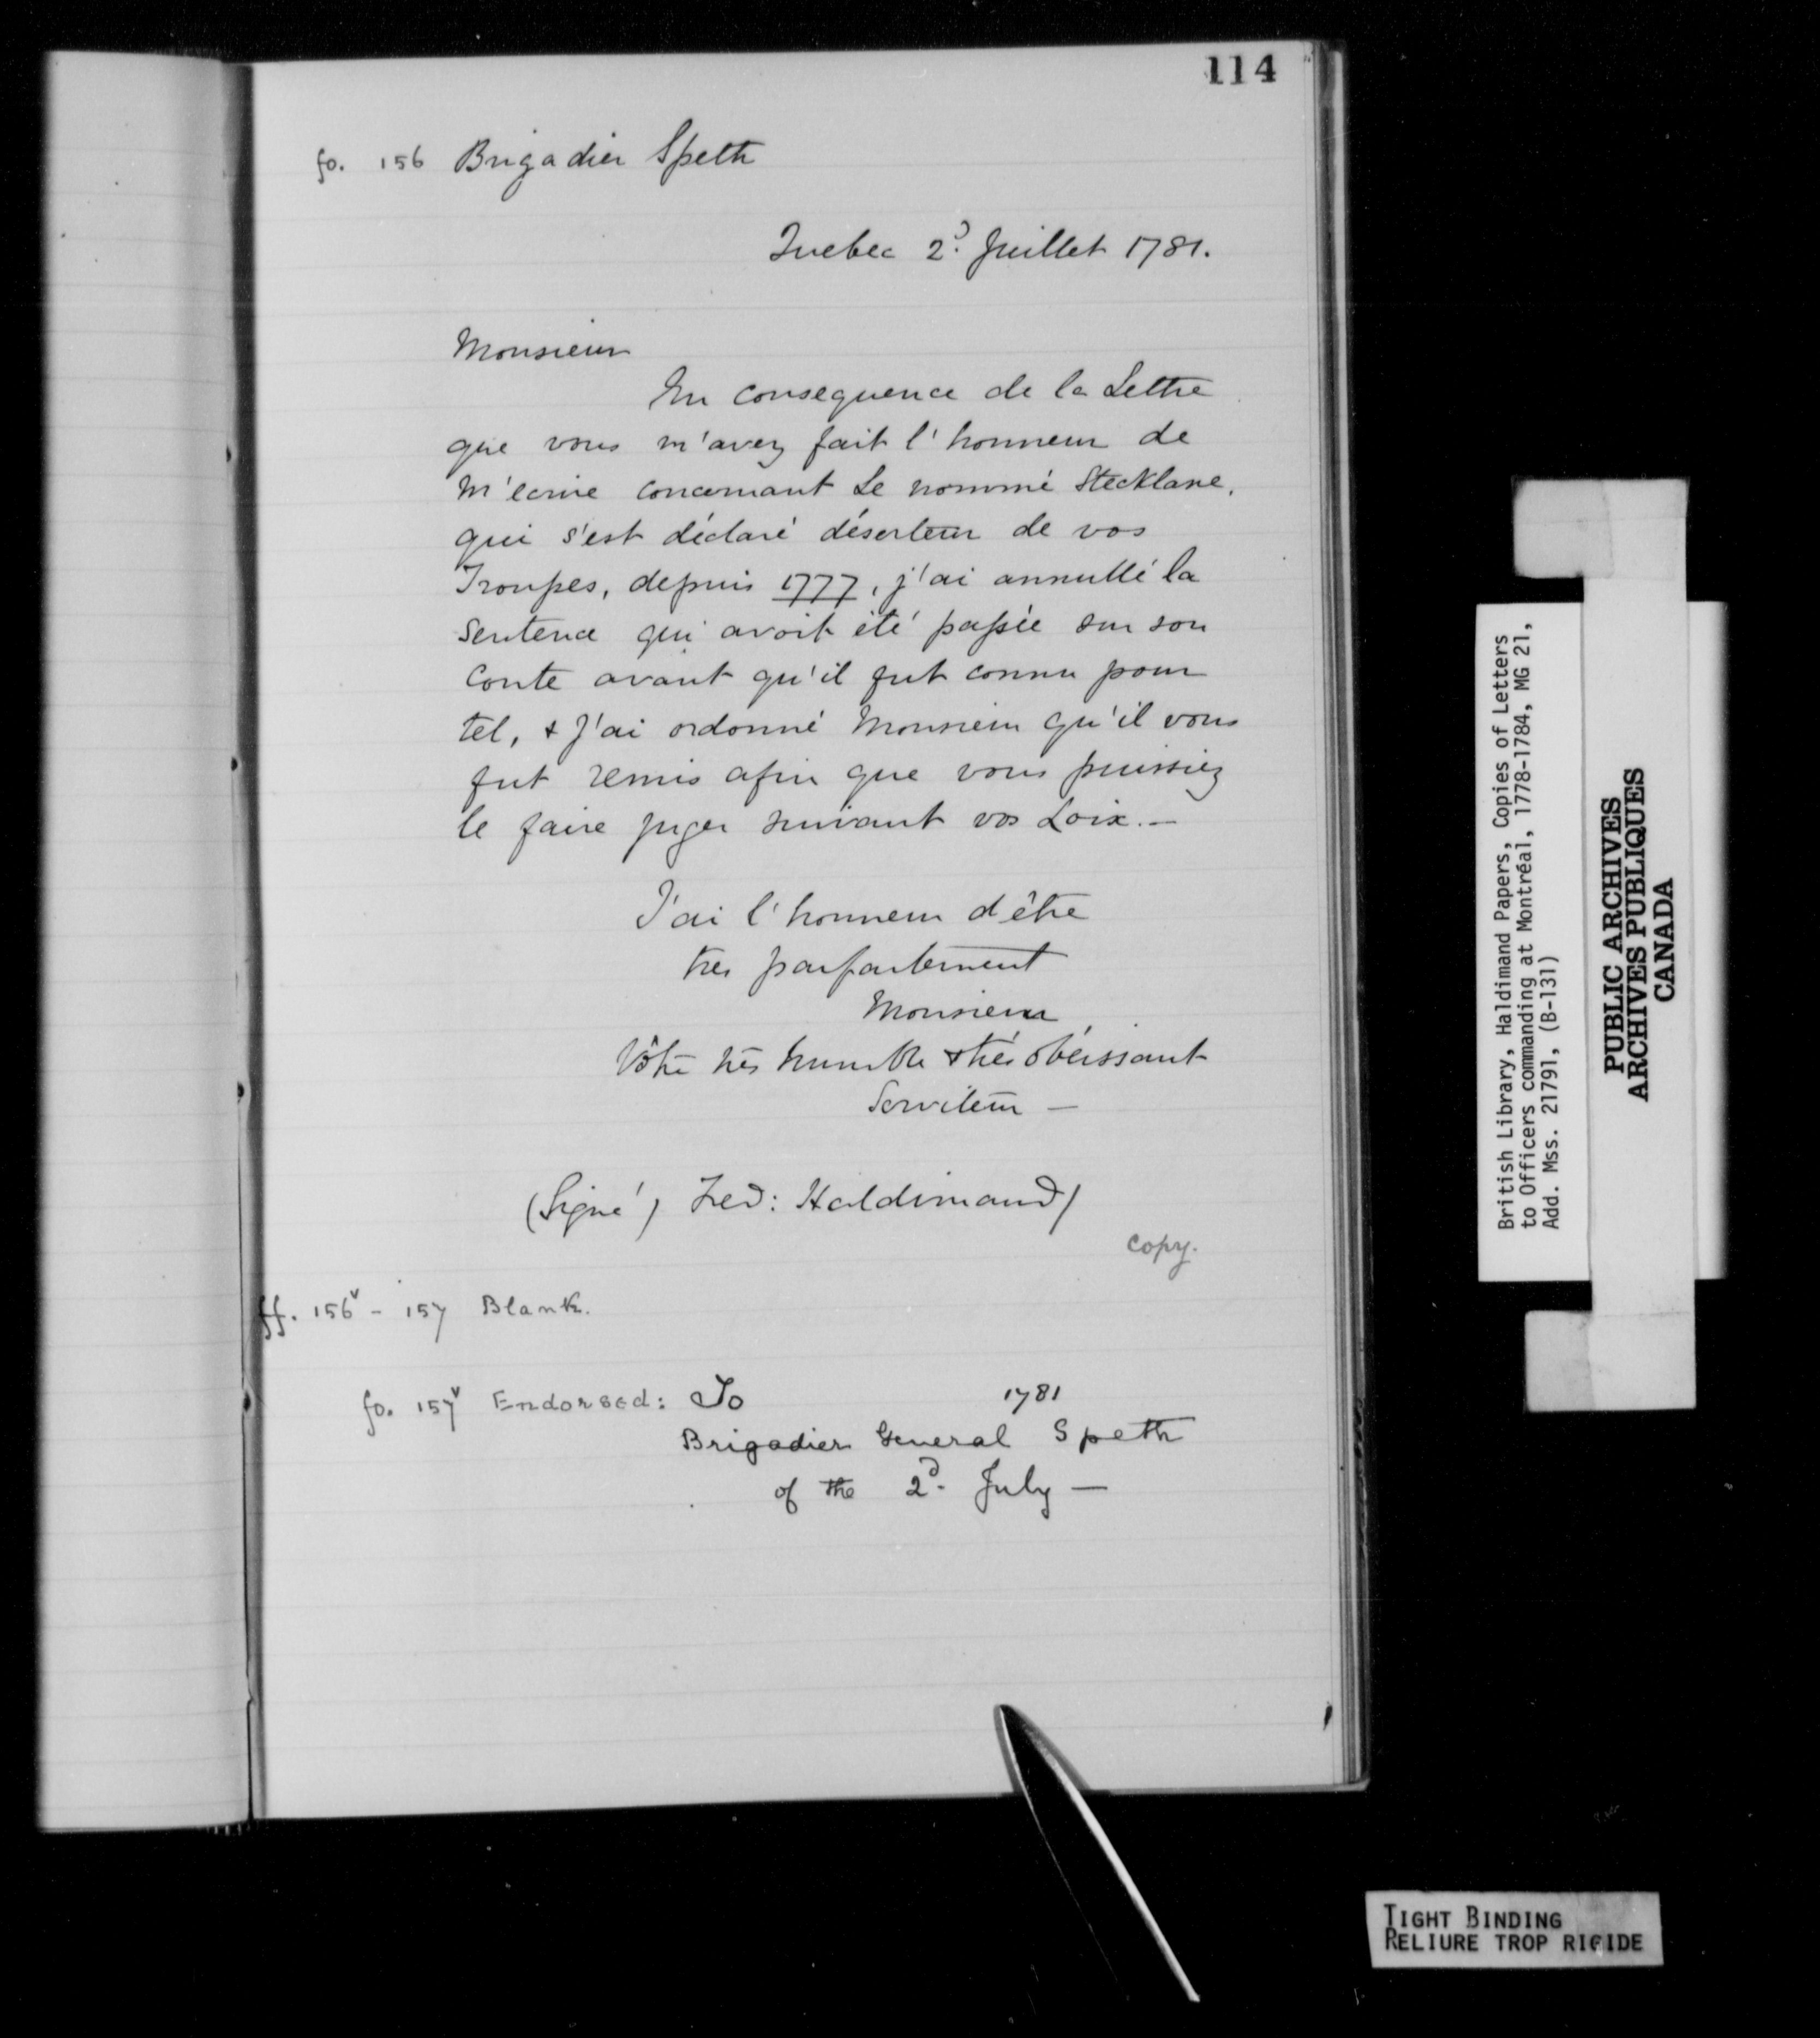 114
fo. 156 Brigadier Speth
Quebec 2d. Juillet 1781.
Monsieur
En consequence de la Lettre
que vous m'avez fait l'honneur de
m'ecrire concernant Le nommé Stecklane,
qui s'est déclaré déserteur de vos
Troupes, depuis 1777, j'ai annullé la
Sentence qui avoit été passée sur son
Conte avant qu'il fut connu pour
tel, & J'ai ordonné Monsieur qu'il vous
fut remis afin que vous puissiez
le faire juger suivant vos Loix.—
J'ai l'honneur d'être
tres parfaitement
Monsieur
Vôtre très humble & très obéissant
Serviteur —
(Signé) Fred: Haldimand/
copy.
ff. 156v - 157 Blank.
fo. 157v Endorsed: To 1781
Brigadier General Speth
of the 2d. July —
British Library, Haldimand Papers, Copies of Letters
to Officers commanding at Montréal, 1778-1784, MG 21,
Add. Mss. 21791, (B-131)
PUBLIC ARCHIVES
ARCHIVES PUBLIQUES
CANADA
TIGHT BINDING
RELIURE TROP RIGIDE